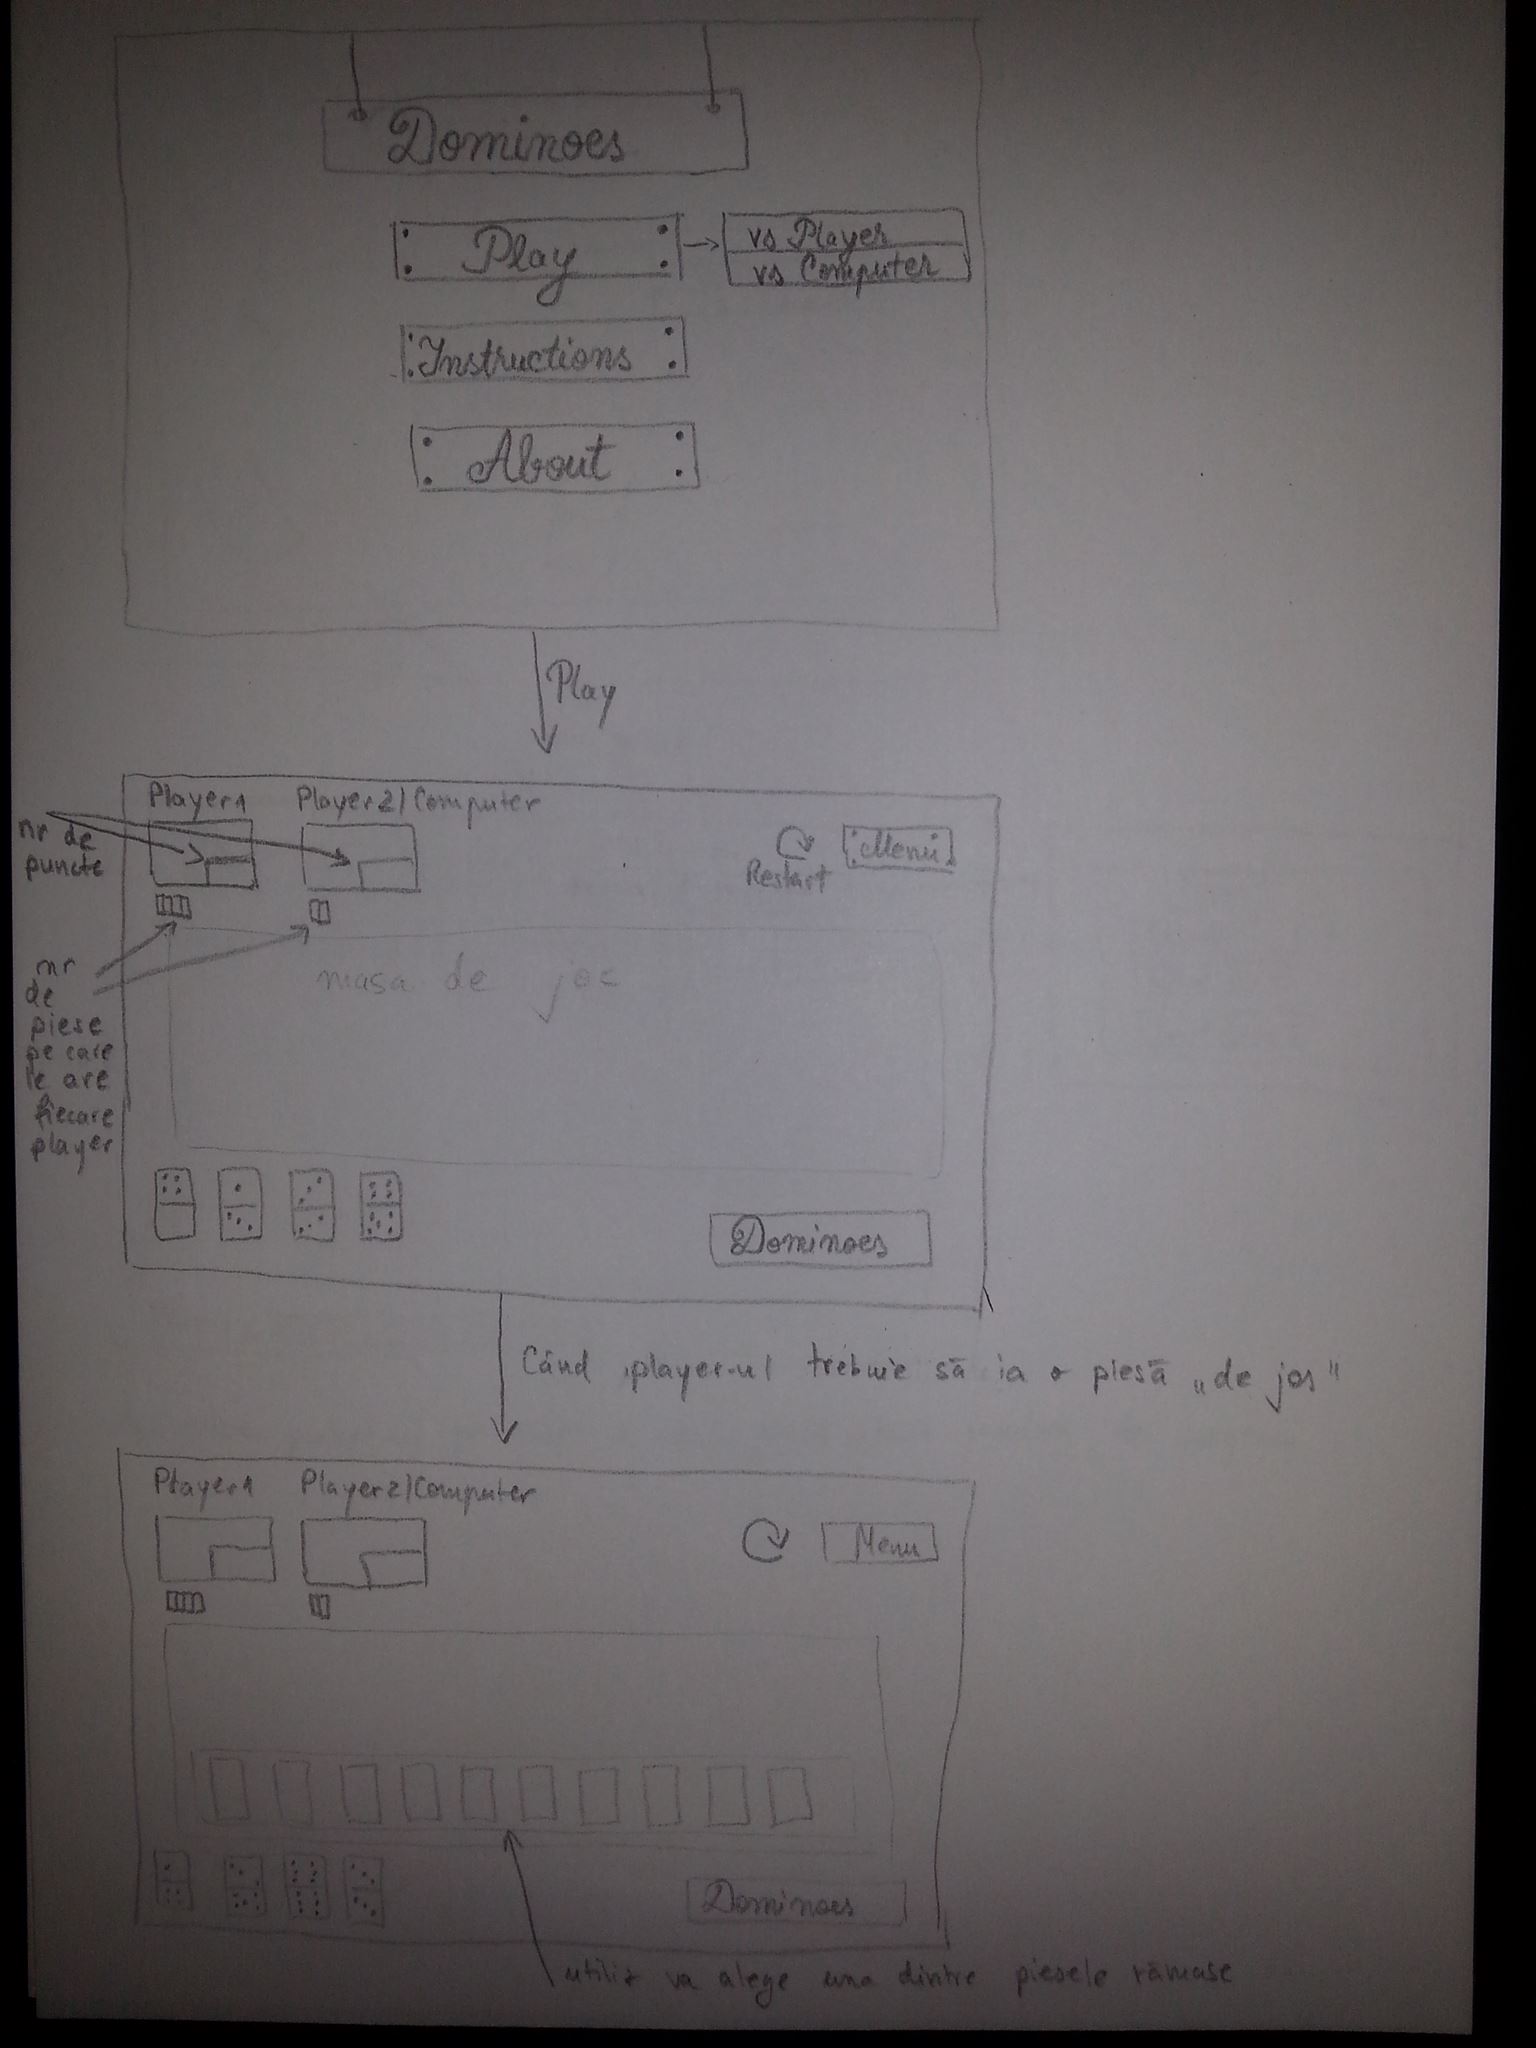 Dominoes
Play
vs Player
vs Computer
Instructions
About
Play
Player1
Player2/Computer
nr de
puncte
Restart
Menu
nr
de
piese
pe care
le are
fiecare
player
masa de joc
Dominoes
Când player-ul trebuie să ia o piesă „de jos"
Player1
Player2/Computer
Menu
Dominoes
utiliz va alege una dintre piesele rămase